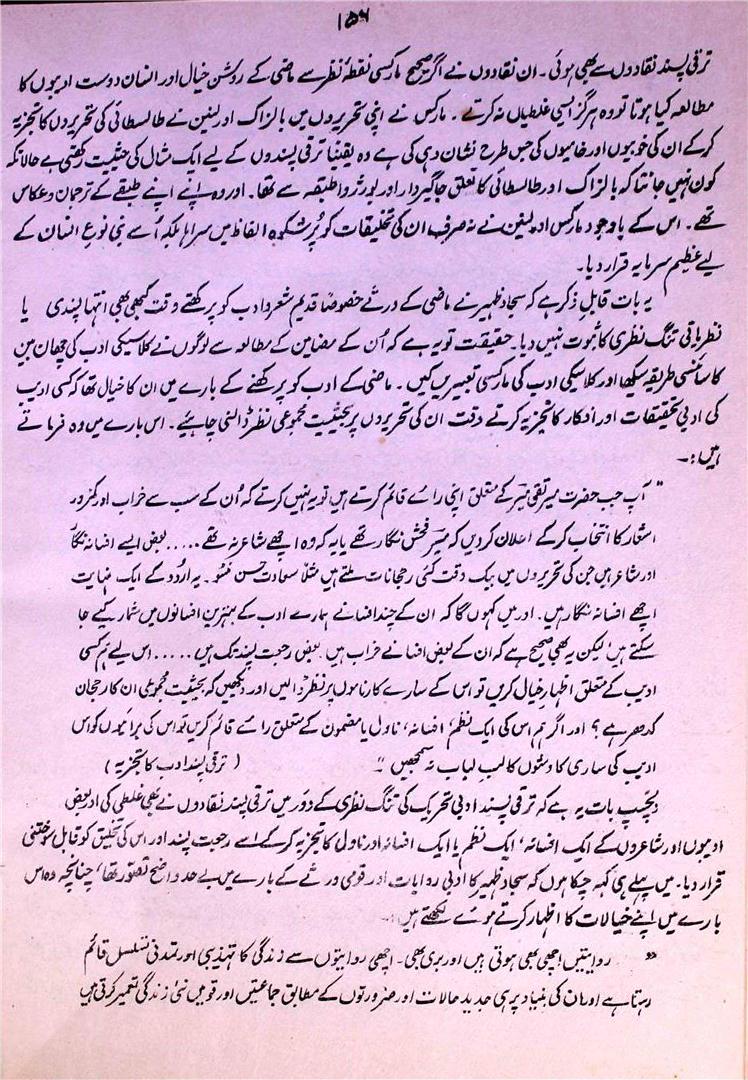 ۱۵۶
ترقی پسند نقادوں سے بھی ہوئی۔ ان نقادوں نے اگر صحیح مارکسی نقطۂ نظر سے ماضی کے روشن خیال اور انسان دوست ادیبوں کا
مطالعہ کیا ہوتا تو وہ ہرگز ایسی غلطیاں نہ کرتے۔ مارکس نے اپنی تحریروں میں بالزاک اور لینن نے طالسطائی کی تحریروں کا تجزیہ
کرکے ان کی خوبیوں اور خامیوں کی جس طرح نشان دہی کی ہے وہ یقیناً ترقی پسندوں کے لیے ایک مثال کی حیثیت رکھتی ہے حالانکہ
کون نہیں جانتا کہ بالزاک اور طالسطائی کا تعلق جاگیردار اور بورژوا طبقہ سے تھا۔ اور وہ اپنے اپنے طبقے کے ترجمان و عکاس
تھے۔ اس کے باوجود مارکس اور لینن نے نہ صرف ان کی تخلیقات کو پُرشکوہ الفاظ میں سراہا بلکہ اُسے بنی نوع انسان کے
لیے عظیم سرمایہ قرار دیا۔
یہ بات قابلِ ذکر ہے کہ سجاد ظہیر نے ماضی کے ورثے خصوصاً قدیم شعر و ادب کو پرکھتے وقت کبھی بھی انتہا پسندی یا
نظریاتی تنگ نظری کا ثبوت نہیں دیا۔ حقیقت تو یہ ہے کہ اُن کے مضامین کے مطالعہ سے لوگوں نے کلاسیکی ادب کی چھان بین
کا سائنسی طریقہ سیکھا اور کلاسیکی ادب کی مارکسی تعبیریں کیں۔ ماضی کے ادب کو پرکھنے کے بارے میں ان کا خیال تھا کہ کسی ادیب
کی ادبی تخلیقات اور افکار کا تجزیہ کرتے وقت ان کی تحریروں پر بحیثیت مجموعی نظر ڈالنی چاہیئے۔ اس بارے میں وہ فرماتے
ہیں:۔
" آپ جب حضرت میر تقی میرؔ کے متعلق اپنی رائے قائم کرتے ہیں تو یہ نہیں کرتے کہ اُن کے سب سے خراب اور کمزور
اشعار کا انتخاب کرکے اعلان کردیں کہ میرؔ فحش نگار تھے یا یہ کہ وہ اچھے شاعر نہ تھے..... بعض ایسے افسانہ نگار
اور شاعر ہیں جن کی تحریروں میں بیک وقت کئی رجحانات ملتے ہیں مثلاً سعادت حسن منٹو۔ یہ اُردو کے ایک نہایت
اچھے افسانہ نگار ہیں۔ اور میں کہوں گا کہ ان کے چند افسانے ہمارے ادب کے بہترین افسانوں میں شمار کیے جا
سکتے ہیں لیکن یہ بھی صحیح ہے کہ ان کے بعض افسانے خراب ہیں بعض رجعت پسند تک ہیں..... اس لیے ہم کسی
ادیب کے متعلق اظہارِ خیال کریں تو اس کے سارے کارناموں پر نظر ڈالیں اور دیکھیں کہ بحیثیت مجموعی ان کا رجحان
کدھر ہے؟ اور اگر ہم اس کی ایک نظم، افسانہ، ناول یا مضمون کے متعلق رائے قائم کریں تو اس کی برائیوں کو اس
ادیب کی ساری کاوشوں کا لب لباب نہ سمجھیں ۔" (ترقی پسند ادب کا تجزیہ)
دلچسپ بات یہ ہے کہ ترقی پسند ادبی تحریک کی تنگ نظری کے دور میں ترقی پسند نقادوں نے یہی غلطی کی اور بعض
ادیبوں اور شاعروں کے ایک افسانہ، ایک نظم یا ایک افسانہ اور ناول کا تجزیہ کرکے اسے رجعت پسند اور اس کی تخلیق کو قابل سوختنی
قرار دیا۔ میں پہلے ہی کہہ چکا ہوں کہ سجاد ظہیر کا ادبی روایات اور قومی ورثے کے بارے میں بے حد واضح تصور تھا، چنانچہ وہ اس
بارے میں اپنے خیالات کا اظہار کرتے ہوئے لکھتے ہیں:۔
" روایتیں اچھی بھی ہوتی ہیں اور بری بھی۔ اچھی روایتوں سے زندگی کا تہذیبی اور تمدنی تسلسل قائم
رہتا ہے اور ان کی بنیاد پر ہی جدید حالات اور ضرورتوں کے مطابق جماعتیں اور قومیں نئی زندگی تعمیر کرتی ہیں